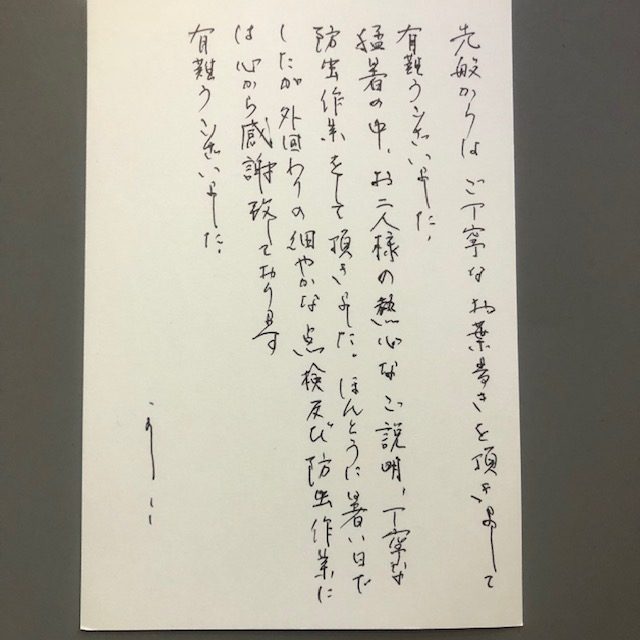 先般からはご丁寧なお葉書きを頂きまして
有難うございました。
猛暑の中、お二人様の熱心なご説明、丁寧な
防虫作業をして頂きました。ほんとうに暑い日で
したが外回わりの細やかな点検及び防虫作業に
は心から感謝致しております
有難うございました。